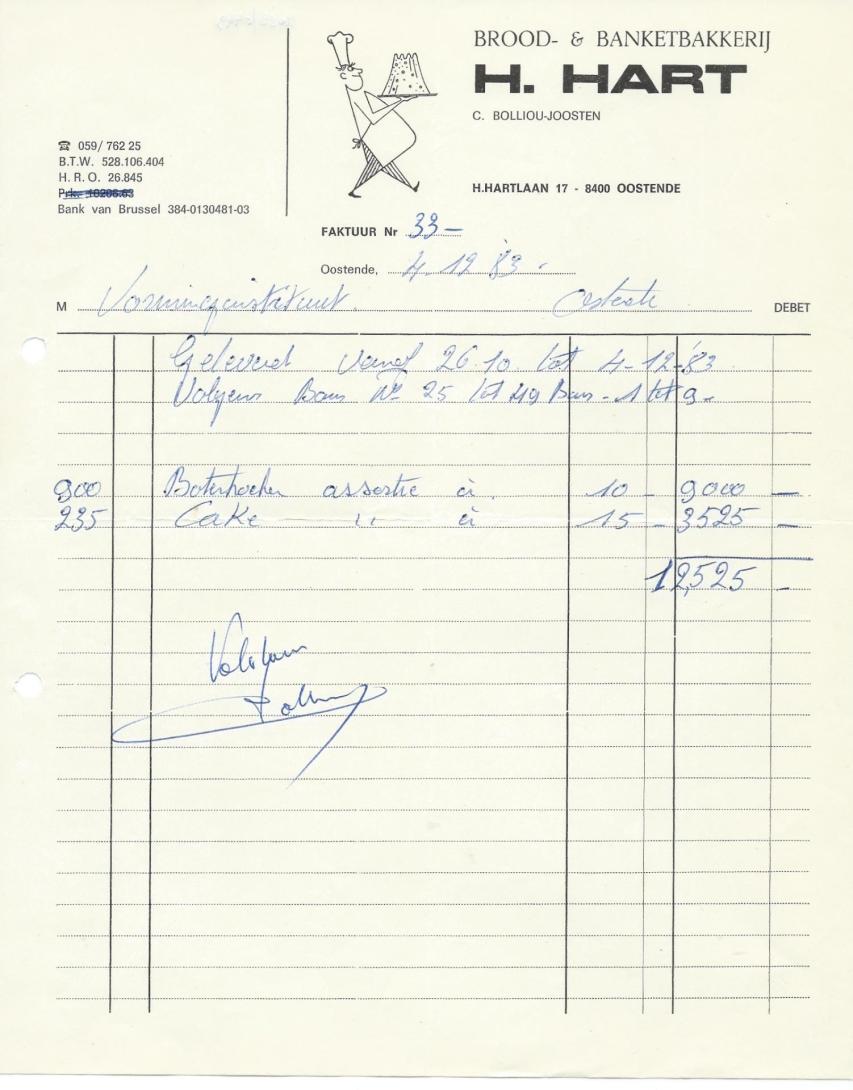 BROOD- & BANKETBAKKERIJ
H. HART
C. BOLLIOU-JOOSTEN
H.HARTLAAN 17 - 8400 OOSTENDE
☎ 059/ 762 25
B.T.W. 528.106.404
H. R. O. 26.845
Bank van Brussel 384-0130481-03
FAKTUUR Nr 33-
Oostende, 4.12 '83.
M Vormingsinstituut. DEBET
Geleverd vanaf 26.10. tot 4-12-'83
Volgens Bons Nr 25 tot 49 Bons - 1 tot 9-
900 Boterkoeken assortie à. 10 - 9000 -
235 Cake " à 15 - 3525 -
12,525 -
Voldaan